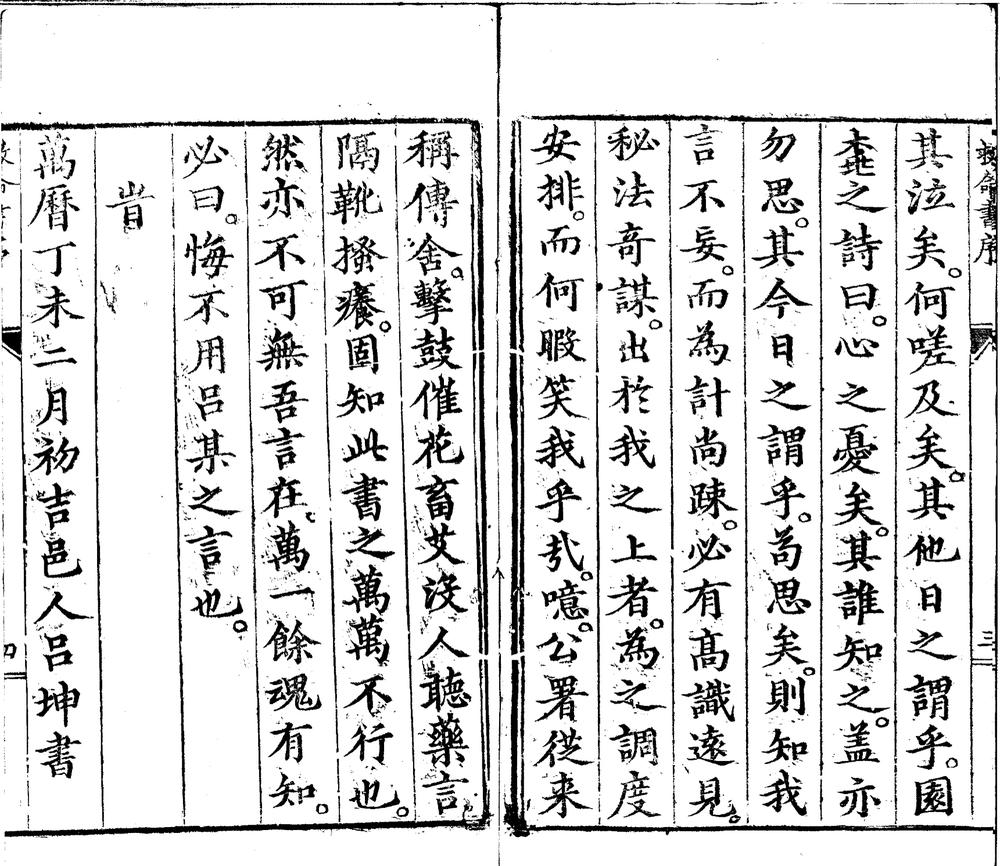 救命書序 三
其泣矣。何嗟及矣。其他日之謂乎。園
桃之詩曰。心之憂矣。其誰知之。盖亦
勿思。其今日之謂乎。苟思矣。則知我
言不妄。而為計尚踈。必有髙識遠見。
秘法奇謀。出於我之上者。為之調度
安排。而何暇笑我乎㢤。噫。公署従来
稱傳舍。擊鼓催花畜艾沒人聽藥言
隔靴搔癢。固知此書之萬萬不行也。
然亦不可無吾言在。萬一餘魂有知。
必曰。悔不用呂某之言也。
旹
萬曆丁未二月初吉邑人呂坤書